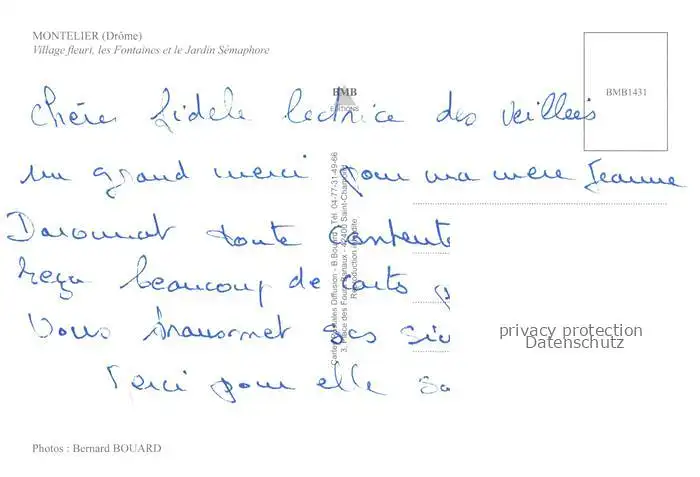 MONTELIER (Drôme)
Village fleuri, les Fontaines et le Jardin Sémaphore
BMB
EDITIONS
BMB1431
Chères fidele lectrice des Veillees
un grand merci pour ma mere Jeanne
toute
reçu beaucoup de carts
Vous transmet ses
Merci pour elle
Cartes Postales Diffusion - B.Bouard - Tél. 04-77-31-49-66
3, Place des Fours Banaux - 42400 Saint-Chamond
Reproduction interdite
privacy protection
Datenschutz
Photos : Bernard BOUARD